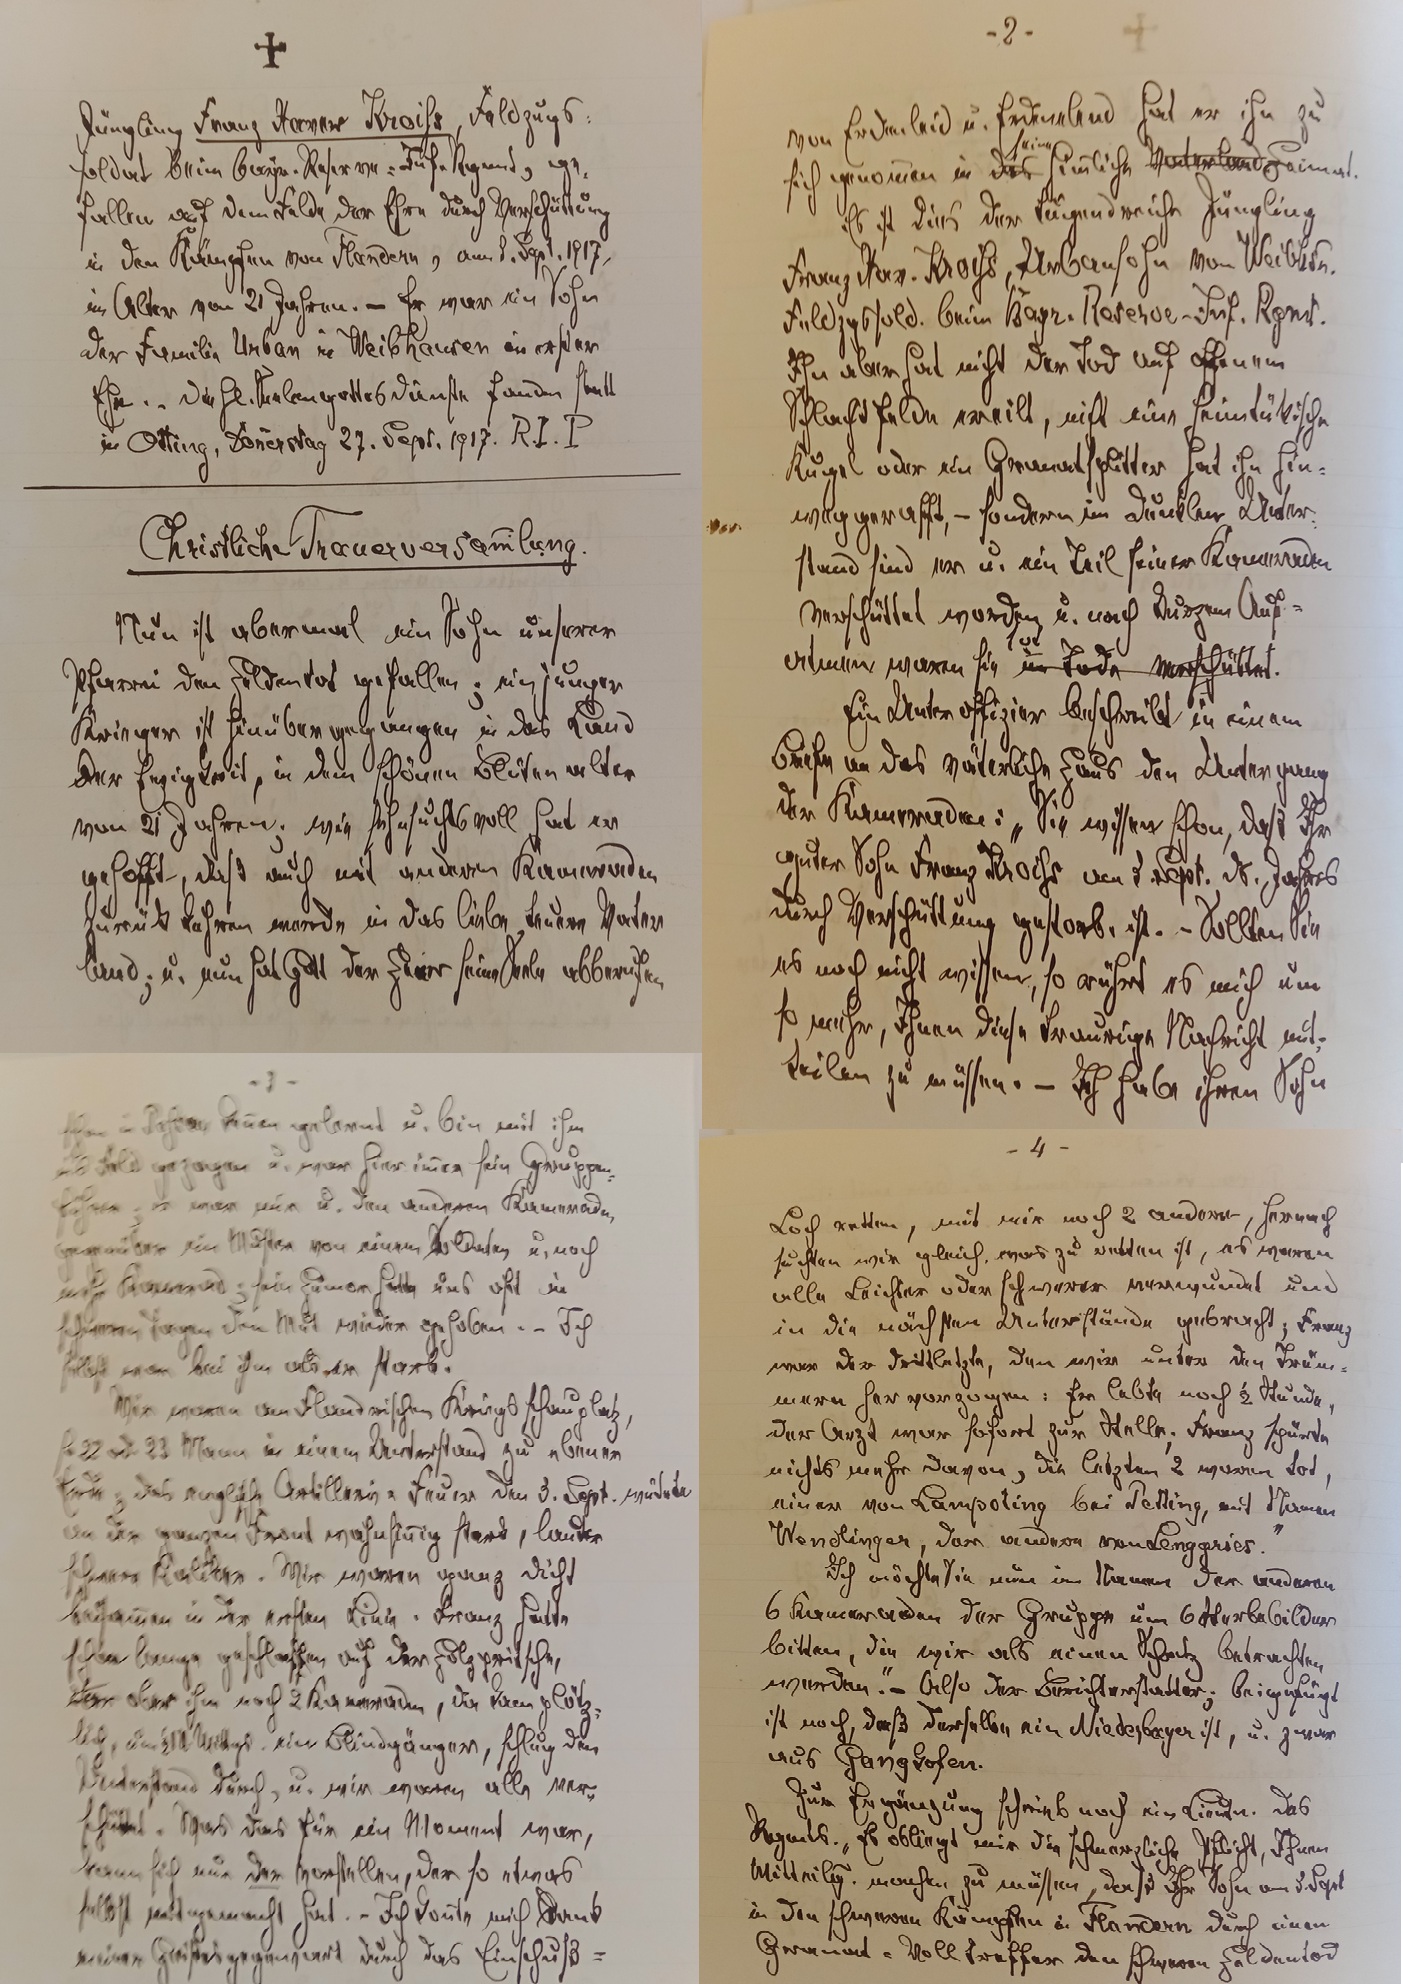 Jüngling Franz Xaver Kroiß, Feldzugs=
soldat beim bayr. Reserve-Inf. Regmt, ge=
fallen auf dem Felde der Ehre durch Verschüttung
in den Kämpfen von Flandern, am 3. Sept. 1917,
im Alter von 21 Jahren. – Er war ein Sohn
der Familie Urban in Weibhausen in erster
Ehe. – Die hl. Seelengottesdienste fanden statt
in Otting, Donerstag 27. Sept. 1917. R.I.P
Christliche Trauerversam̅lung.
Nun ist abermal ein Sohn unserer
Pfarrei den Heldentot gefallen; ein junger
Krieger ist hinübergegangen in das Land
der Ewigkeit, in dem schönen Blütenalter
von 21 Jahren; wie sehnsuchtsvoll hat er
gehofft, daß auch mit anderen Kameraden
zurückkehren werde in das liebe, teuere Vater
land; u. nun hat Gott der Herr seine Seele abberufen
- 2 -
von Erdenleid u. Erdenelend hat er ihn zu
sich genom̅en in das seine him̅lische Vaterland Heimat.
Es ist dies der tugendreiche Jüngling
Franz Xav. Kroiß, Urbansohn von Weibhsn.
Feldzgssold. beim Bayr. Reserve-Inf. Rgmt.
Ihn aber hat nicht der Tod auf offenem
Schlachtfelde ereilt, nicht eine heimtückische
Kugel oder ein Granatsplitter hat ihn hin=
weggerafft, – sondern im dunklen Unter=
stand sind er u. ein Teil seiner Kameraden
verschüttet worden u. nach kurzem Auf=
atmen waren sie tot im Tode verschüttet.
Ein Unteroffizier beschreibt in einem
Briefe an das väterliche Haus den Untergang
der Kameraden: „Sie wissen schon, daß Ihr
guter Sohn Franz Kroiß am 3. Sept. ds. Jahres
durch Verschüttung gestorb. ist. – Sollten Sie
es noch nicht wissen, so rührt es mich um
so mehr, Ihnen diese traurige Nachricht mit=
teilen zu müssen. – Ich habe ihren Sohn
- 3 -
schon in kennen gelernt u. bin mit ihm
ins Feld gezogen u. war hier im̅er sein Gruppen=
führer; er war mir u. den anderen Kameraden
gegenüber ein Muster von einem Soldaten u. noch
mehr Kamerad; sein Humor hatte uns oft in
schweren Tagen den Mut wieder gehoben. – Ich
selbst war bei ihm als er starb.
Wir waren am Flandrischen Kriegsschauplatz,
so 22 od. 23 Mann in einem Unterstand zu ebener
Erde; das englische Artillerie=Feuer den 3. Sept. wütete
an der ganzen Front wahnsin̅ig stark, lauter
schwere Kaliber. Wir waren ganz dicht
beisam̅en in der ersten Linie. Franz hatte
schon lange geschlafen auf der Holzpritsche,
ihm noch 2 Kameraden, da kam plötz=
lich, ein Blindgänger, schlug den
Unterstand durch, u. wir waren alle ver=
schüttet. Was das für ein Moment war,
kann sich nur der vorstellen, der so etwas
selbst mitgemacht hat. – Ich konnte mich dank
meiner Geistesgegenwart durch das Einschuß=
- 4 -
Loch retten, mit mir noch 2 andere, hernach
suchten wir gleich, was zu retten ist, es waren
alle leichter oder schwerer verwundet und
in die nächsten Unterstände gebracht; Franz
war der drittletzte, den wir unter den Trüm=
mern hervorzogen: Er lebte noch ½ Stunde,
der Arzt war sofort zur Stelle; Franz spürte
nichts mehr davon, die letzten 2 waren tot,
einer von Lampoting bei Petting, mit Namen
Wendlinger, der andere von Lenggries."
Ich möchte Sie nun im Namen der anderen
6 Kameraden der Gruppe um 6 Sterbebilder
bitten, die wir als einen Schatz betrachten
werden". – Also der Berichterstatter; beigefügt
ist noch, daß derselbe ein Niederbayer ist, u. zwar
aus Gangkofen.
Zur Ergänzung schrieb noch ein Lieutn. das
Regmts. „Es obliegt mir die schmerzliche Pflicht, Ihnen
Mitteilg. machen zu müssen, daß Ihr Sohn am 3. Sept
in den schweren Kämpfen in Flandern durch einen
Granat=Volltreffer den schweren Heldentod